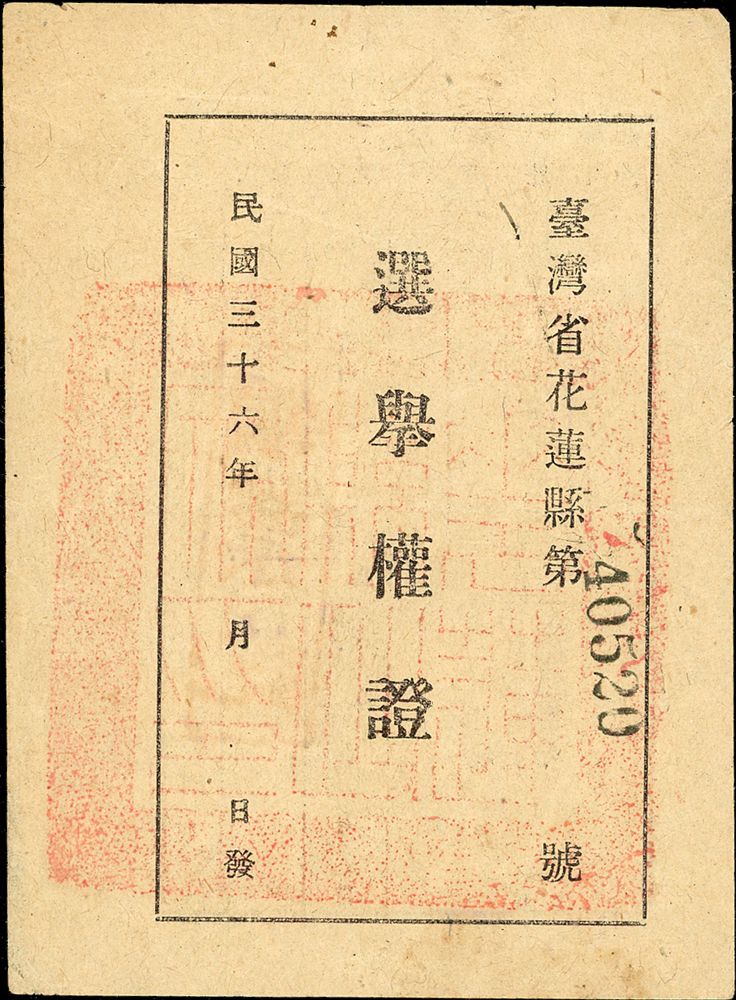 臺灣省花蓮縣第40520號
選舉權證
民國三十六年 月 日發